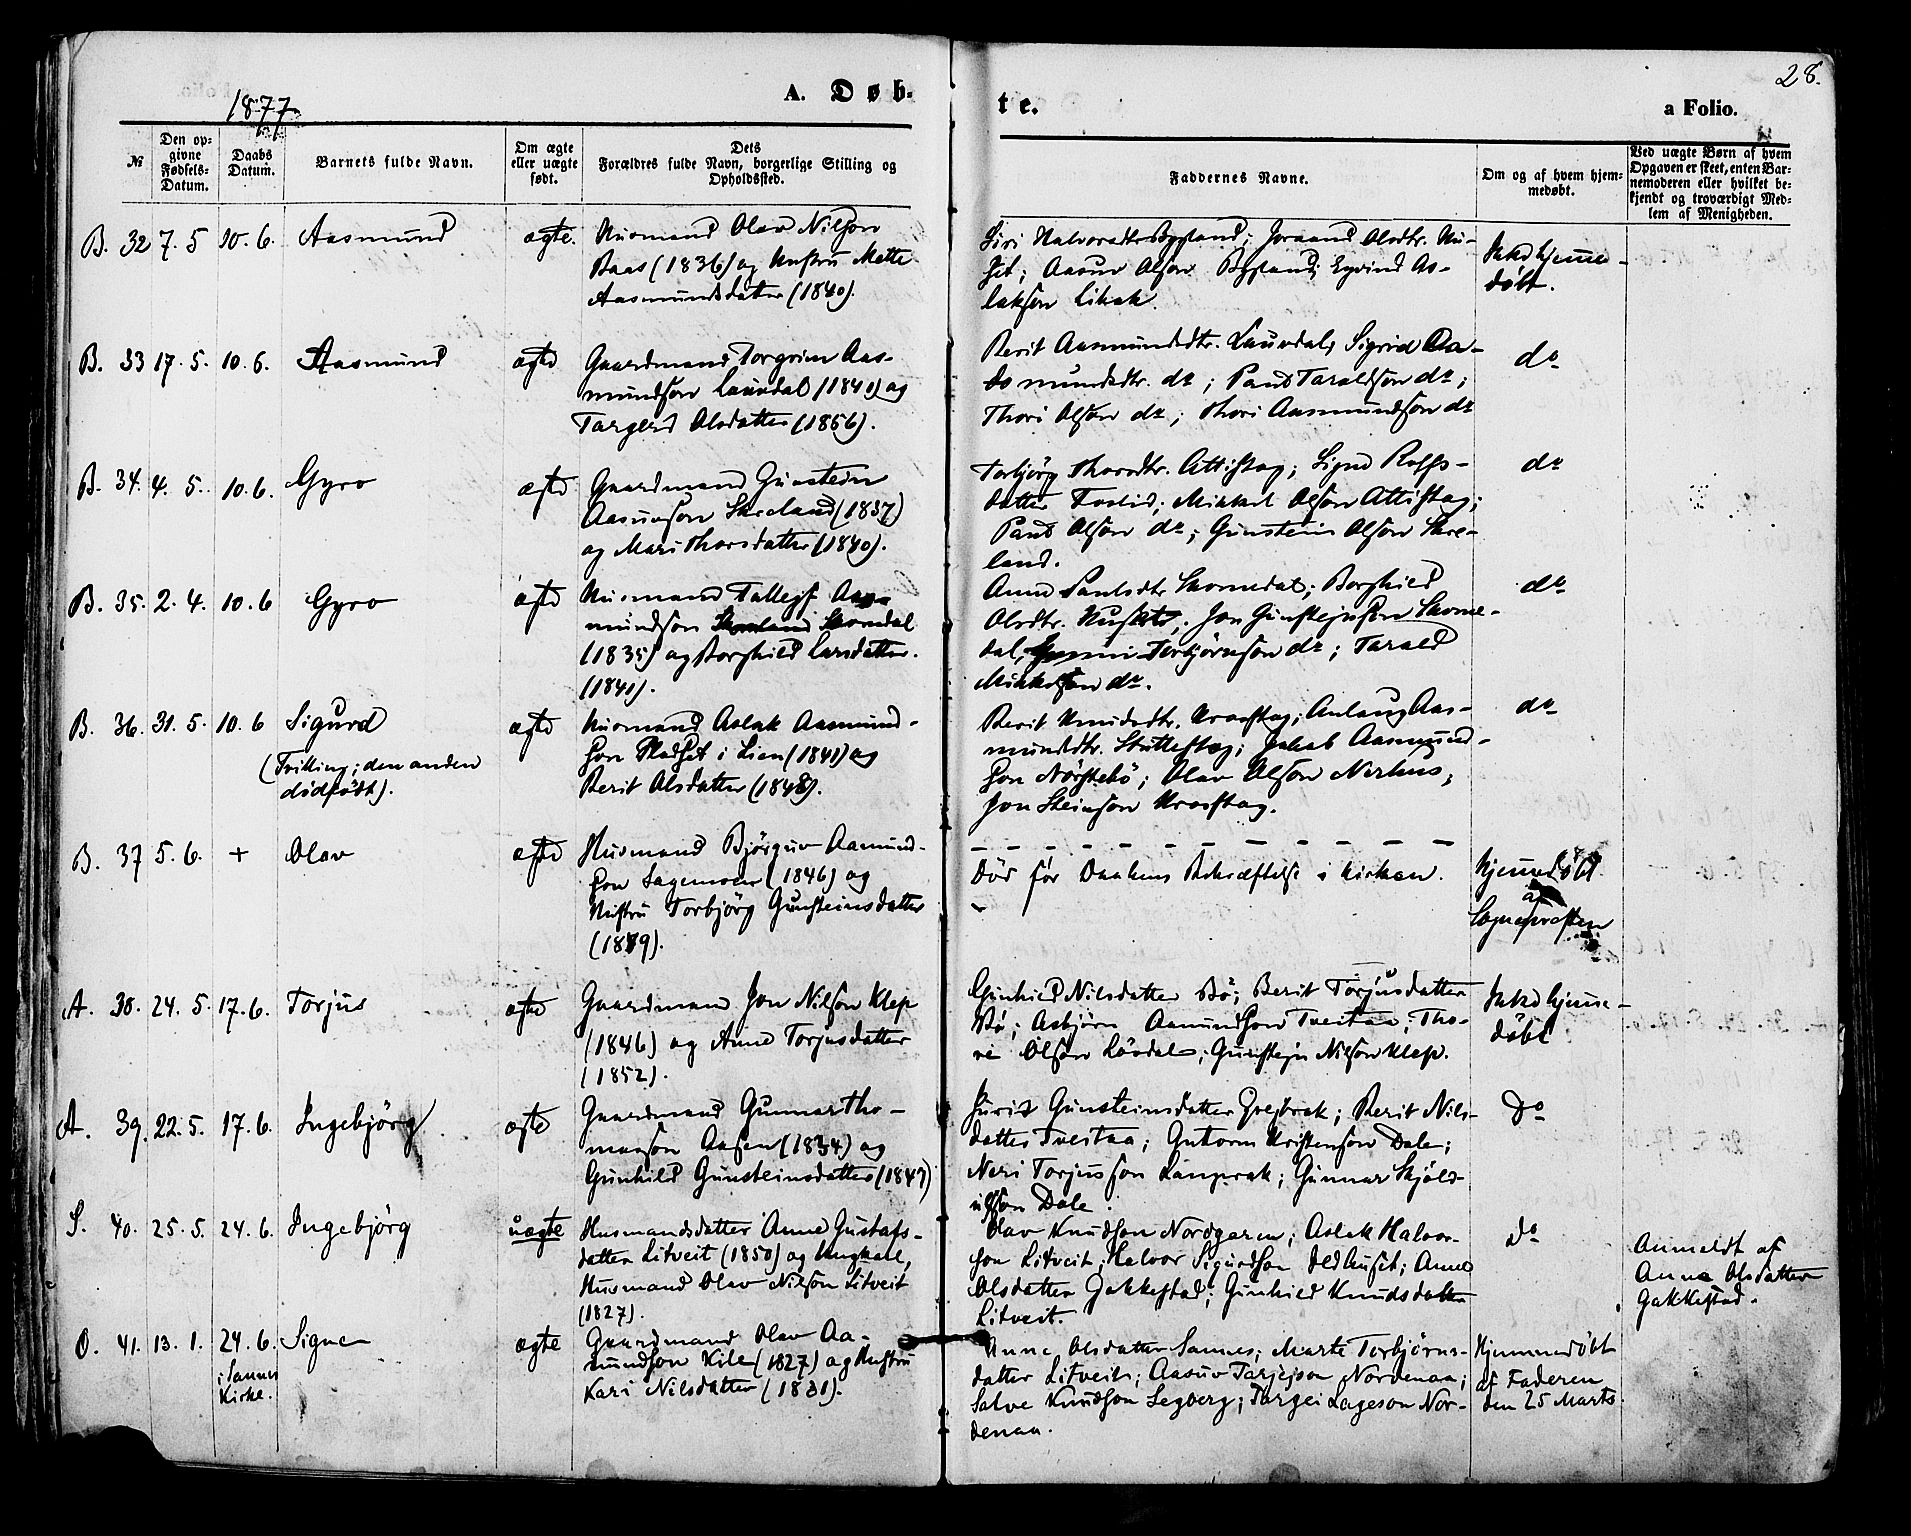 1877
28.
A. Døb-
te.
a Folio.
№
Den op-
givne
Fødsels-
Datum.
Daabs
Datum.
Barnets fulde Navn.
Om ægte
eller uægte
født.
Dets
Forældres fulde Navn, borgerlige Stilling og
Opholdssted.
Faddernes Navne.
Om og af hvem hjem-
medøbt.
Ved uægte Børn af hvem
Opgaven er skeet, enten Bar-
nemoderen eller hvilket be-
kjendt og troværdigt Med-
lem af Menigheden.
B. 32 7. 5 10. 6. Aasmund ægte.
Husmand Olav Nilson
Baas (1836) og Hustru Mette
Aasmundsdatter (1840).
Siri Halvorsdtr Bygland; Joraand Olsdtr.
Aasuv Olson Bygland; Eyvind As-
lakson
Ikke hjemme-
døbt.
B. 33 17. 5. 10. 6. Aasmund ægte
Gaardmand Torgrim Aas-
mundson Lauvdal (1840) og
Targerd Olsdatter (1856).
Berit Aasmundsdtr. Lauvdal, Sigrid Aa-
mundsdtr. do; Paul Taraldson do;
Thori Olson do; Thori Aasmundson do
do
B. 34. 4. 5. 10. 6. Gyro ægte
Gaardmand Gunstein
Aasuvson Skreland (1837)
og Mari Thorsdatter (1840).
Torbjörg Thorsdtr. Attistog; Signe Rolfs-
datter; Mikkel Olson Attistog;
Paul Olson do; Gunstein Olson Skre-
land.
do
B. 35. 2. 4. 10. 6 Gyro ægte
Husmand Tallegf Aas-
mundson Skomdal
(1835) og Borghild Larsdatter.
(1841).
Anne Paulsdtr Skomedal; Borghild
Olsdtr. Jon Gunstejnson Skome-
dal, Torbjörnson do; Tarald
Mikkelson do.
do
B. 36. 31. 5. 10. 6 Sigurd ægte
(Tvilling; den anden
dödfödt).
Husmand Aslak Aasmund-
son Pladset i Lien (1841) og
Berit Olsdatter (1848).
Berit Knudsdtr. Uvostog; Anlaug Aas-
mundsdtr. Stullestog; Jakob Aasmund-
son Nörstebö; Olav Olson Nerhus;
Jon Steinson Uvostog.
do
B. 37 5. 6. + Olav ægte
Husmand Björguv Aamund-
son Sagemoen (1846) og
Hustru Torbjörg Gunsteinsdatter
(1849).
Död för Daabens Bekræftelse i Kirken.
Hjemmedöbt
af
Sognepresten
A. 38. 24. 5. 17. 6. Torjus ægte
Gaardmand Jon Nilson Klep
(1846) og Anne Torjusdatter
(1852).
Gunhild Nilsdatter Bö; Berit Torjusdatter
Bö; Asbjörn Aamundson Tveitaa; Tho-
re Olson Lövdal; Gunstejn Nilson Klep.
Ikke hjemme-
döbt
A. 39. 22. 5. 17. 6. Ingebjörg ægte
Gaardmand Gunnar Tho-
mason Aasen (1834) og
Gunhild Gunsteinsdatter (1847)
Juris Gunsteinsdatter; Berit Nils-
datter Tveitaa; Gutorm Kristenson Dale;
Neri Torjusson Langerak; Gunnar Skjöld-
ulfson Dale.
Do
S. 40. 25. 5. 24. 6. Ingebjörg uægte
Husmandsdatter Anne Gustafs-
datter Litveit (1850) og Ungkarl,
Husmand Olav Nilson Litveit
(1827).
Olav Knudson Nordgaren; Aslak Halvor-
son Litveit; Halvor Sigurdson Oedhuset; Anne
Olsdatter Gakkestad; Gunhild Knudsdatter
Litveit.
do
Anmeldt af
Anne Olsdatter
Gakkestad.
O. 41. 13. 1. 24. 6. Signe ægte
i Sannes
Kirke.
Gaardmand Olav Aa-
mundson Kile (1827) og Hustru
Kari Nilsdatter (1831).
Anne Olsdatter Sannes; Marte Torbjörns-
datter Litveit; Aasuv Tarjejson Nordenaa;
Salve Knudson Legberg; Targei Lageson Nor-
denaa.
Hjemmedöbt
af Faderen
den 25 Marts.